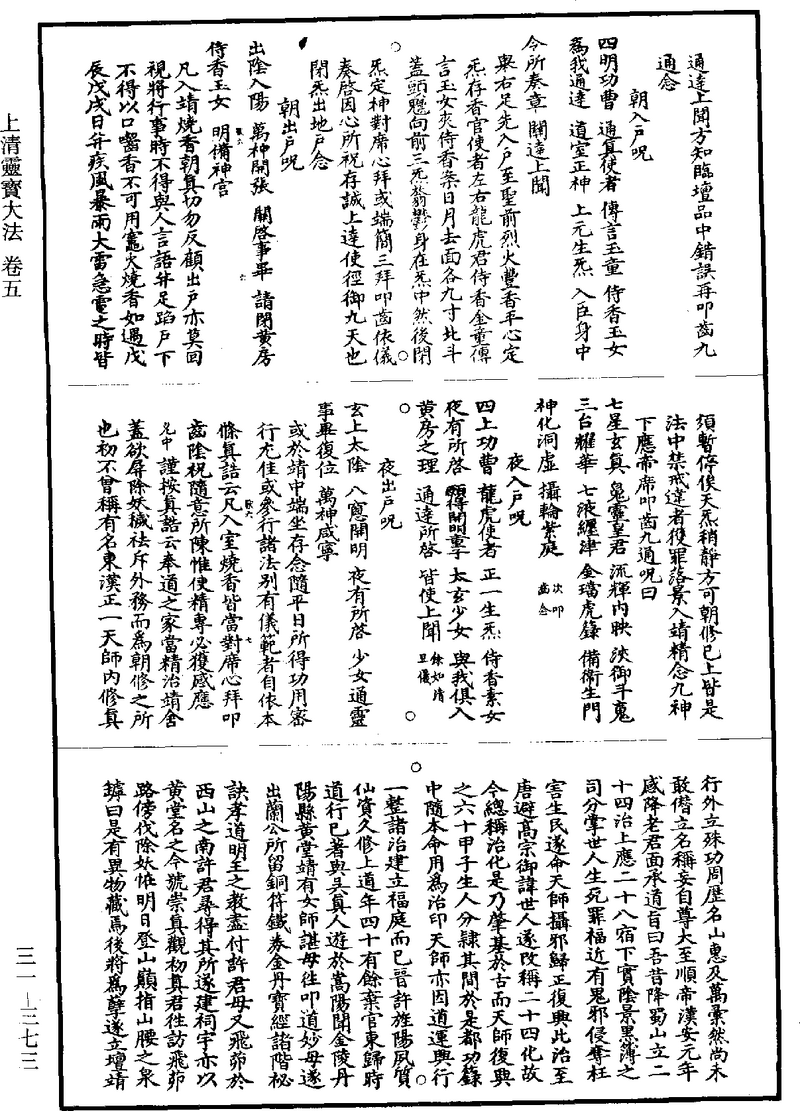 上清靈寶大法 卷五
三一—三七三
通達上聞方知臨壇品中錯誤再叩齒九
通念
朝入戶呪
四明功曹 通真使者 傳言玉童 侍香玉女
爲我通達 道室正神 上元生炁 入臣身中
令所奏章 關達上聞
舉右足先入戶至聖前烈火豐香平心定
炁存香官使者左右龍虎君侍香金童傳
言玉女夾侍香案日月去面各九寸北斗
蓋頭魒向前三炁蓊鬱身在炁中然後閉
炁定神對席心拜或端簡三拜叩齒依儀
奏啓因心所祝存誠上達使徑御九天也
閉炁出地戶念
朝出戶呪
出陰入陽 萬神開張 關啓事畢 請閉黄房
侍香玉女 明備神言
凡入靖燒香朝真切勿反顧出戶亦莫回
視將行事時不得與人言語并足蹈戶下
不得以口嚙香不可用竈火燒香如遇戊
辰戊戌日并疾風暴雨大雷急電之時皆
須暫停俟天炁稍靜方可朝修已上皆是
法中禁戒違者獲罪落景入靖精念九神
下應帝席叩齒九通呪曰
七星玄真 鬼靈皇君 流輝内映 浹御斗䰢
三台耀華 七液纒津 金璫虎籙 備衞生門
神化洞虛 攝輪紫庭 次叩齒念
夜入戶呪
四上功曹 龍虎使者 正一生炁 侍香素女
夜有所啓 願得開明童子 太玄少女 與我俱入
黄房之理 通達所啓 皆使上聞 餘如清旦儀
夜出戶呪
玄上太陰 八窻開明 夜有所啓 少女通靈
事畢復位 萬神咸寧
或於靖中端坐存念隨平日所得功用審
行尤佳或參行諸法別有儀範者自依本
條真誥云凡入室燒香皆當對席心拜叩
齒陰祝隨意所陳惟使精專必獲感應
謹按真誥云奉道之家當精治靖舍
蓋欲屏除妖穢祛斥外務而爲朝修之所
也初不曾稱有名東漢正一天師内修真
行外立殊功周歷名山惠及萬彙然尚未
敢僭立名稱妄自尊大至順帝漢安元年
感降老君面承道旨曰吾昔降蜀山立二
十四治上應二十八宿下實陰景黑溥之
司分掌世人生死罪福近有鬼邪侵奪枉
害生民遂命天師攝邪歸正復興此治至
唐避髙宗御諱世人遂改稱二十四化故
今總稱治化是乃肇基於古而天師復興
之六十甲子生人分隸其間於是都功籙
中隨本命用爲治印天師亦因道運興行
一整諸治建立福庭而已晉許旌陽夙質
仙資久修上道年四十有餘棄官東歸時
道行已著與吳真人遊於嵩陽聞金陵丹
陽縣黄堂靖有女師諶母徃叩道妙母遂
出蘭公所留銅符鐵券金丹寶經諸階祕
訣孝道明王之教盡付許君母又飛茆於
西山之南許君尋得其所遂建祠宇亦以
黄堂名之今號崇真觀初真君徃訪飛茆
路傍伐除妖恠明日登山巔指山腰之泉
罅曰是有異物藏焉後將爲孽遂立壇靖